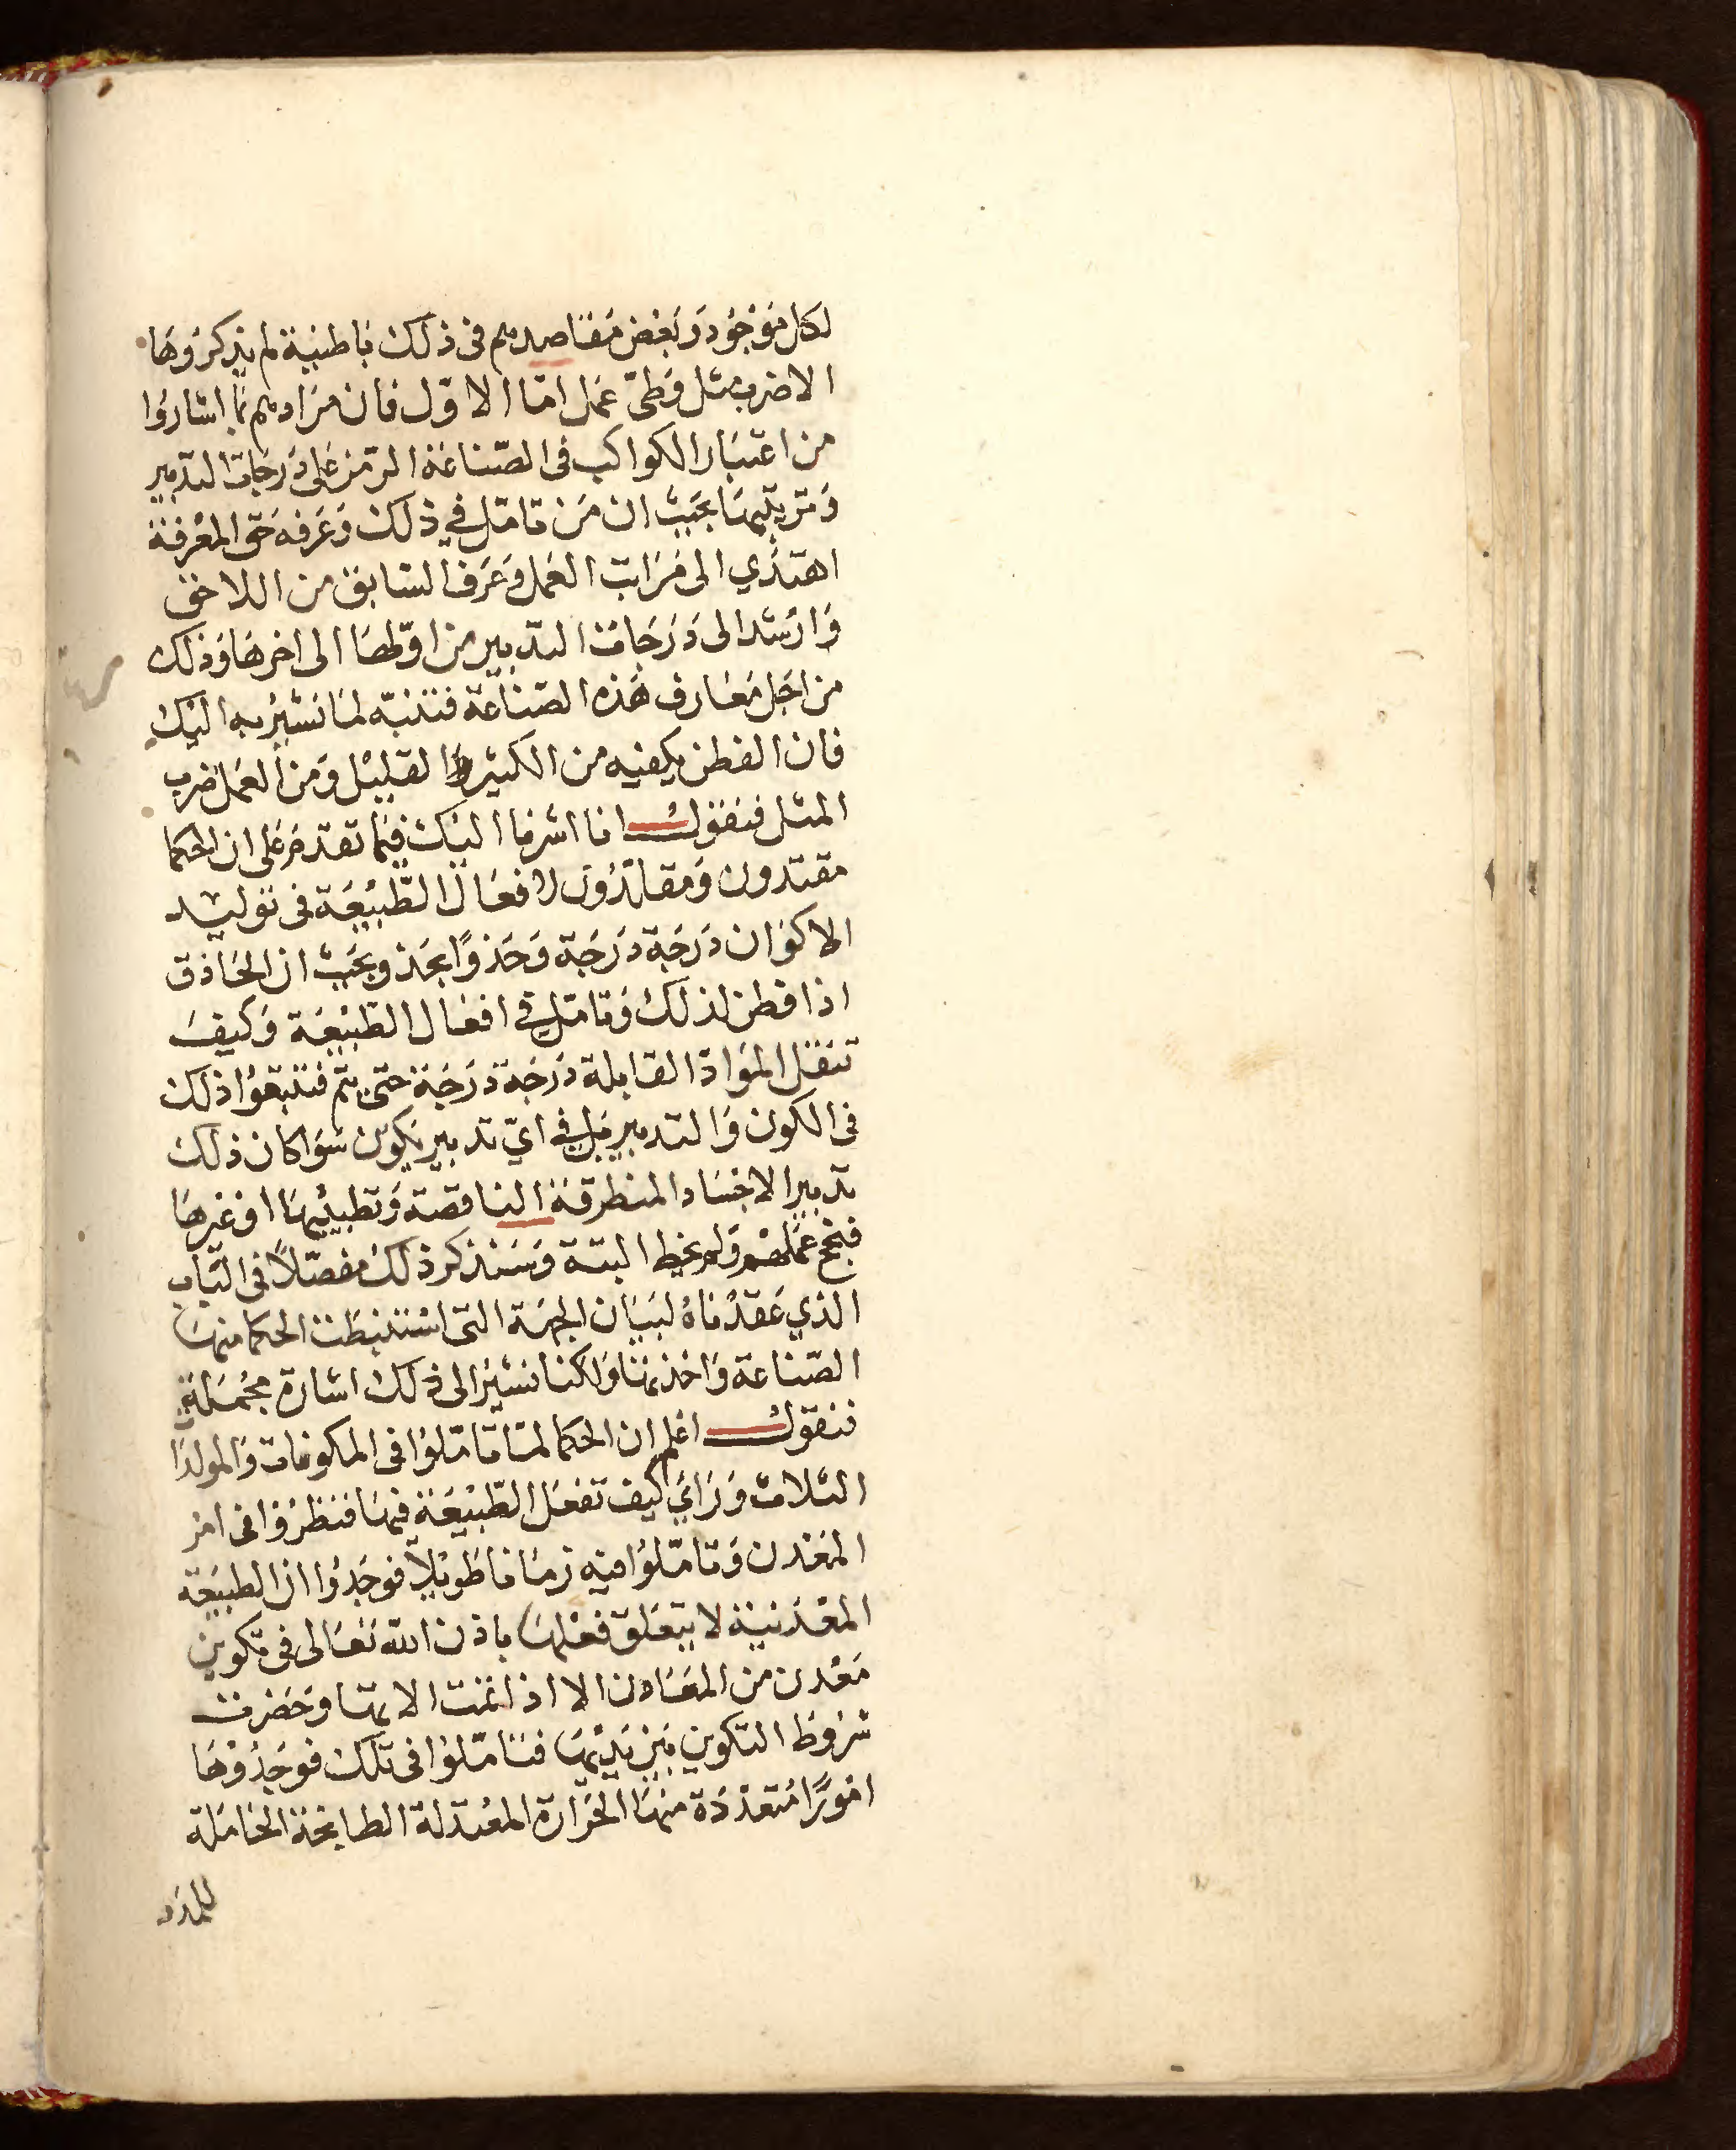 لكل موجود وبعض مقاصدهم فى ذلك باطنية لم يذكروها
الا ضرب مثل وطى عمل اما الاول فان مرادهم بما اشاروا
من اعتبار الكواكب فى الصناعة الرمز على درجات التدبير
وترتيبها بحيث ان من تامل في ذلك وعرفه حق المعرفة
اهتدي الى مراتب العمل وعرف السابق من اللاحق
وارشد الى درجات التدبير من اولها الى اخرها وذلك
من اجل معارف هذه الصناعة فتنبه لما نشير به اليك
فان الفطن يكفيه من الكثير القليل ومن العمل ضرب
المثل فنقول انا اشرنا اليك فيما تقدم على ان الحكما
مقتدون ومقلدون لافعال الطبيعة فى توليد
الاكوان درجة درجة وحذوًا بحذو بحيث ان الحاذق
اذا فطن لذلك وتامل في افعال الطبيعة وكيف
تنقل المواد القابلة درجة درجة حتى يتم فتتبعوا ذلك
فى الكون والتدبير بل في اي تدبير يكون سوا كان ذلك
تدبير الاجساد المنطرقة الناقصة وتطبيبها او غيرها
فينجح عملهم ولم يخط البتة وسنذكر ذلك مفصلاً فى الباب
الذي عقدناه لبيان الجهة التى استنبطت الحكما منها
الصناعة واخذتها ولكنا نشير الى ذلك اشارة مجملة
فنقول اعلم ان الحكما لما تاملوا فى المكونات والمولدا
الثلاث وراي كيف تفعل الطبيعة فيها فنظروا فى امر
المعدن وتاملوا فيه زمانا طويلاً فوجدوا ان الطبيعة
المعدنية لا يتعلق فعلها باذن الله تعالى فى تكوين
معدن من المعادن الا اذا تمت الاتها وحضرت
شروط التكوين بين يديها فتاملوا فى تلك فوجدوها
امورًا متعددة منها الحرارة المعتدلة الطابخة الحاملة
للمدد